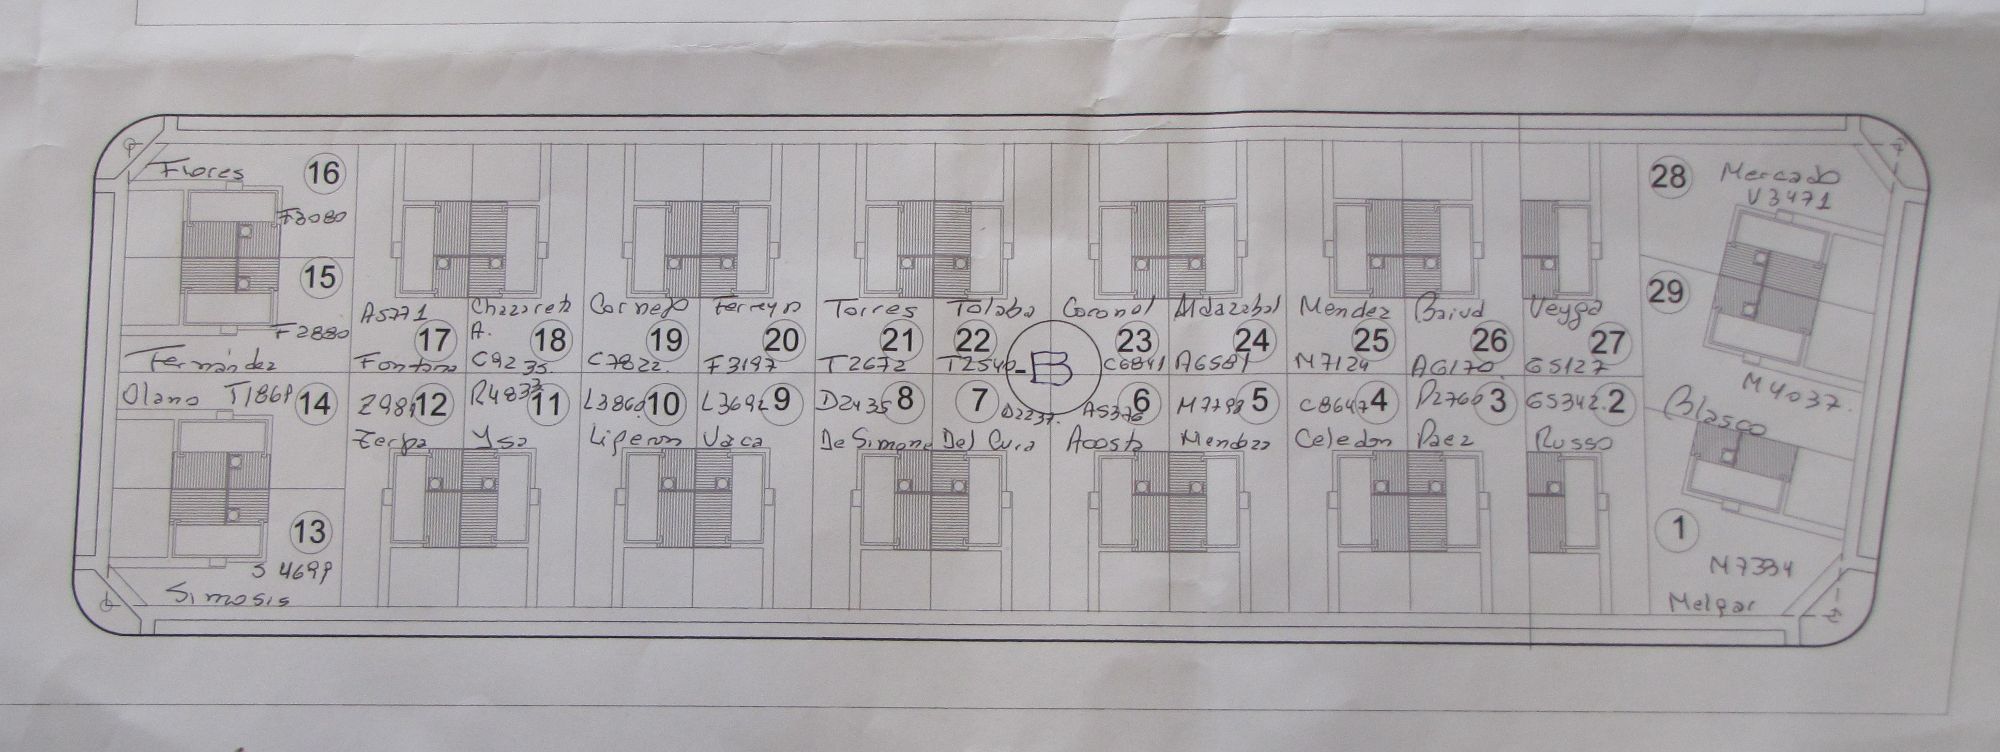 Flores 16
F3080
15
F2880
Fernández
A5771
17
Fontana
Chazareta
A. 18
C9235
Cornejo
19
C7822
Ferreyra
20
F3197
Torres
21
T2672
Tolaba
22
T2540
B
Coronel
23
C6841
24
A6581
Mendez
25
M7124
26
A6170
Veyga
27
G5127
28 Mercado
V3471
29
M4037
Blasco
1
M7334
Melgar
Russo
G5342 2
Paez
P2760 3
Celedon
C8647 4
Mendoza
M7798 5
Acosta
A5376 6
Del Cura
7
D2237
De Simone
D2435 8
Vaca
L3692 9
Liperon
L3860 10
Ysa
R4833 11
Zerpa
12
Olano 14
13
S4699
Simosis